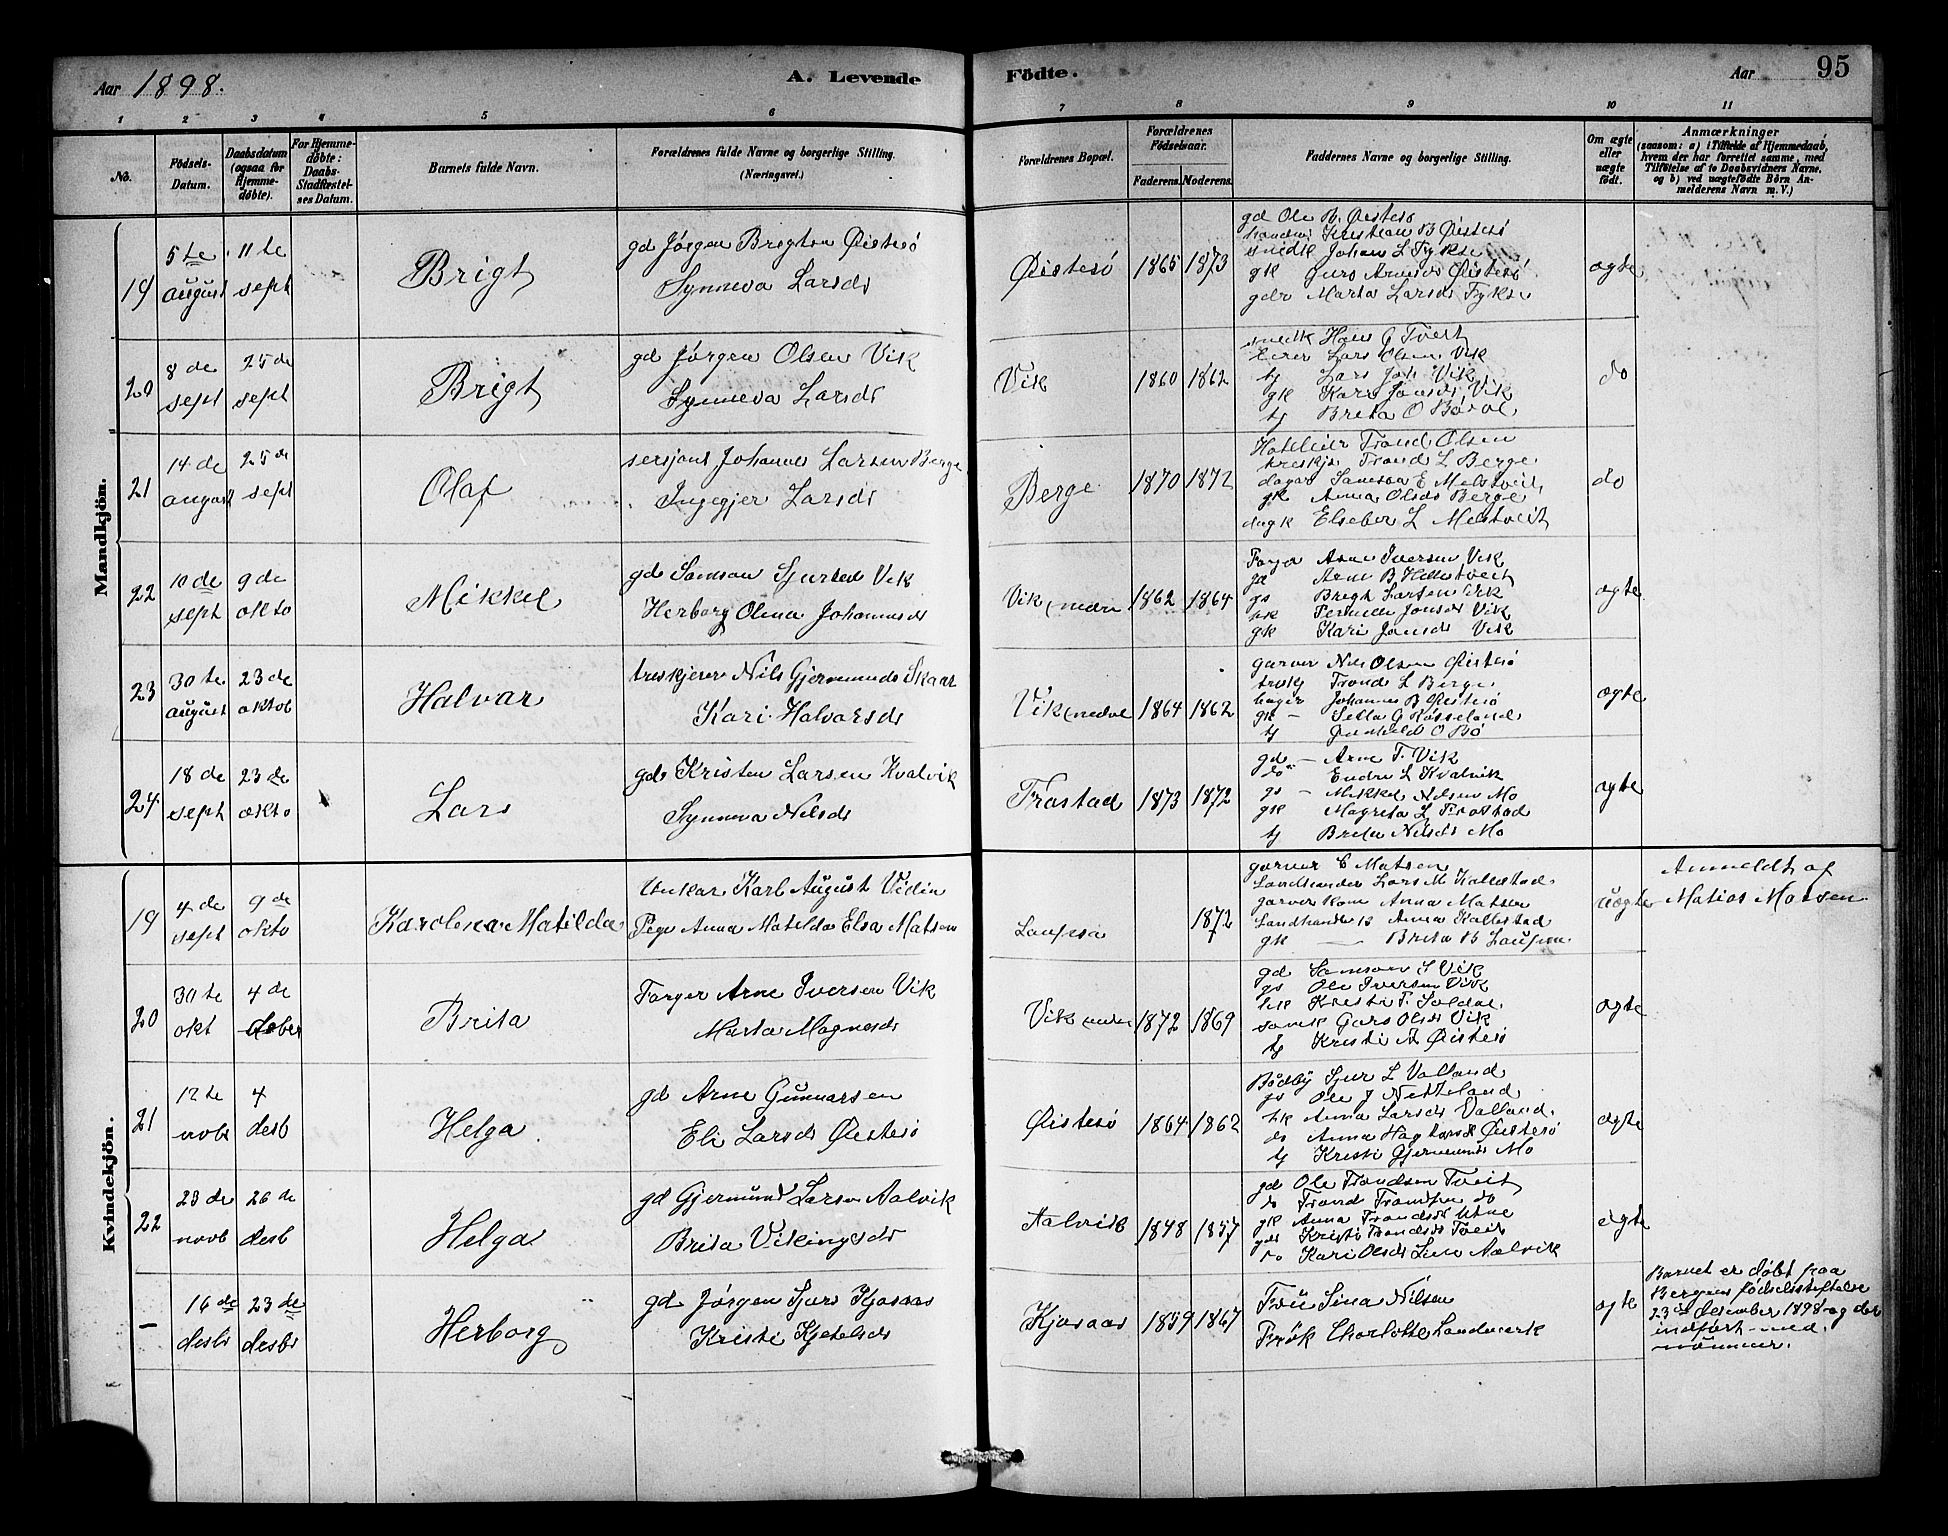 Aar 1898. A. Levende Födte. Aar 95
1 2 3 4 5 6 7 8 9 10 11
No.
Födsels-Datum.
Daabsdatum (ogsaa for Hjemmedöbte).
For Hjemmedöbte: Daabs-Stadfæstelses Datum.
Barnets fulde Navn.
Forældrenes fulde Navne og borgerlige Stilling.
(Næringsvei.)
Forældrenes Bopæl.
Forældrenes Födselsaar.
Faderens. Moderens.
Faddernes Navne og borgerlige Stilling.
Om ægte eller uægte födt.
Anmærkninger
(saasom: a) i Tilfælde af Hjemmedaab, hvem der har forrettet samme, med Tilföielse af to Daabsvidners Navne, og b) ved uægtefödte Börn Anmelderens Navn m. V.)
Mandkjön.
19 5te august 11te sept Brigt
gd Jørgen Brigtsen Øistesø
Synneva Larsds
Øistesø 1865 1873
gd Ole B. Øistesø
Kristian B Øistesø
snedk Johan L Fykse
gk Guro Arnesds Øistesø
gdr Marta Larsds Fykse
ægte
20 8de sept 25de sept Brigt
gd Jørgen Olsen Vik
Synneva Larsds
Vik 1860 1862
snedk Hans G Tveit
lærer Lars Olsen Vik
tj Lars Joh Vik
gk Kari Jonsds Vik
tj Brita O Børve
do
21 14de august 25de sept Olaf
sersjant Johannes Larsen Berge
Ingegjer Larsds
Berge 1870 1872
Hoteleier Trond Olsen
treskjr Trond L Berge
dagar Samson E Melstveit
gk Anna Olsds Berge
dagk Elseber L Melstveit
do
22 10de sept 9de okto Mikkel
gd Samson Sjursen Vik
Herborg Olina Johannesds
Vik nedre 1862 1864
Farger Arne Iversen Vik
gd Arne B Hellestveit
gs Brigt Larsen Vik
hk Pernille Jonsds Vik
gk Kari Jonsds Vik
ægte
23 30te august 23de oktob Halvar
treskjerer Nils Gjermunds Skaar
Kari Halvarsds
Vik nedre 1864 1862
garver Nils Olsen Øistesø
treskj Trond L Berge
bager Johannes B Øistesø
gk – Sella G Røsseland
tj Gunhild O Bø
ægte
24 18de sept 23de okto Lars
gd Kristen Larsen Kvalvik
Synneva Nilsds
Trostad 1873 1872
gd – Arne T. Vik
do – Endre L Kvalvik
gs – Mikkel Nilsen Mo
gk Magreta L Trostad
tj Brita Nilsds Mo
ægte
Kvindekjön.
19 4de sept 9de okto Karolena Matilda
Unkar Karl August Vedin
Pige Anna Matilda Elsa Matsen
Laupsa 1872
garver E Matsen
Landhandler Lars M Kallestad
garver kone Anna Matsen
Landhandler k Anna Kallestad
gk — Brita B Laupsa
uægte
Anmeldt af
Matias Matsen
20 30te okt 4de desber Brita
Farger Arne Iversen Vik
Marta Magnesds
Vik nedre 1872 1869
gd Samson S Vik
gs Ole Iversen Vik
hk Kristi T. Soldal
Guro Olsds Vik
tj Kristi A Øistesø
ægte
21 12te novb 4 desb Helga
gd Arne Gunnarsen
Eli Larsds Øistesø
Øistesø 1864 1862
Bødky Sjur L Valland
gs Ole J Netteland
hk Anna Larsds Valland
ds Anna Hagtorsds Øistesø
tj Kristi Gjermunds Mo
ægte
22 23de novb 26de desb Helga
gd Gjermund Larsen Aalvik
Brita Vikingsds
Aalvik 1848 1857
gd Ole Trondsen Tveit
do Trond Trondsen do
gk Anna Trondsds Utne
gds Kristi Trondsds Tveit
do Kari Olsds Aalvik
ægte
– 16de desbr 23de desbr Herborg
gd Jørgen Sjurs Kjosaas
Kristi Kjetelsds
Kjosaas 1859 1867
Frü Sina Nilsen
Frøk Charlotte Landmark
ægte
Barnet er døbt paa
Bergens fødselsstiftelse
23de desember 1898 og der
indført med
nummer.